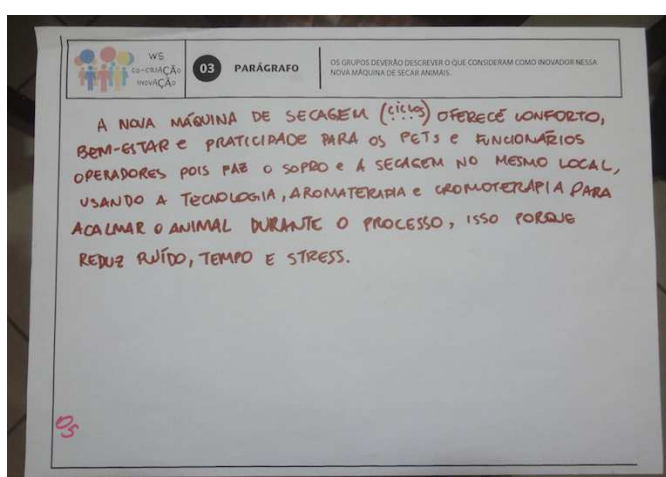 WS
CO-CRIAÇÃO
INOVAÇÃO
03
PARÁGRAFO
OS GRUPOS DEVERÃO DESCREVER O QUE CONSIDERAM COMO INOVADOR NESSA
NOVA MÁQUINA DE SECAR ANIMAIS.
A NOVA MÁQUINA DE SECAGEM (ciclos) OFERECE CONFORTO,
BEM-ESTAR e PRATICIDADE PARA OS PETS e FUNCIONÁRIOS
OPERADORES POIS FAZ O SOPRO e A SECAGEM NO MESMO LOCAL,
USANDO A TECNOLOGIA, AROMATERAPIA e CROMOTERAPIA PARA
ACALMAR O ANIMAL DURANTE O PROCESSO, ISSO PORQUE
REDUZ RUÍDO, TEMPO E STRESS.